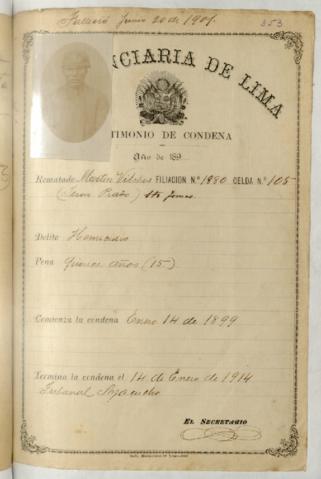 Falleció Junio 20 de 1901.
353
NCIARIA DE LIMA
TIMONIO DE CONDENA
Año de 189
Rematado Martin Vilches FILIACION N.º 1880 CELDA N.º 105
(Juan Prado)
Delito Homicidio
Pena Quince años (15)
Comienza la condena Enero 14 de 1899
Termina la condena el 14 de Enero de 1914
Tribunal Ayacucho
EL SECRETARIO